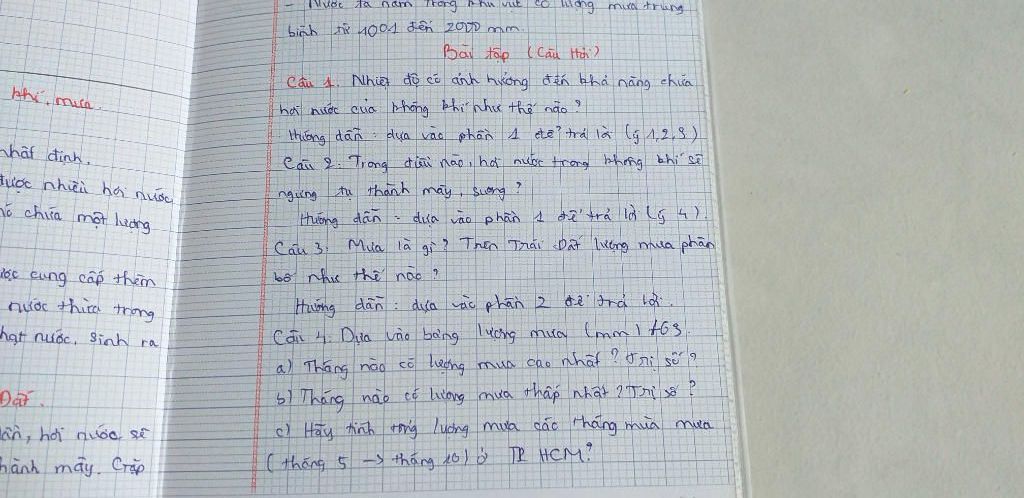 khí, mưa.
nhất định.
được nhiều hơi nước
chứa một lượng
cung cấp thêm
nước thừa trong
hạt nước, sinh ra
Đất.
hơi nước sẽ
thành mây. Gặp
- Nước ta nằm trong khu vực có lượng mưa trung
bình từ 1001 đến 2000 mm.
Bài tập (Câu Hỏi)
Câu 1. Nhiệt độ có ảnh hưởng đến khả năng chứa
hơi nước của không khí như thế nào?
Hướng dẫn: dựa vào phần 1 để trả lời (ý 1,2,3)
Câu 2. Trong điều nào, hơi nước trong không khí sẽ
ngưng tụ thành mây, sương?
Hướng dẫn: dựa vào phần 1 để trả lời (ý 4).
Câu 3: Mưa là gì? Trên Trái Đất lượng mưa phân
bố như thế nào?
Hướng dẫn: dựa vào phần 2 để trả lời.
Câu 4. Dựa vào bảng lượng mưa (mm) t63.
a) Tháng nào có lượng mưa cao nhất? Trị số?
b) Tháng nào có lượng mưa thấp nhất? Trị số?
c) Hãy tính tổng lượng mưa các tháng mùa mưa
(tháng 5 -> tháng 10) ở TP HCM?